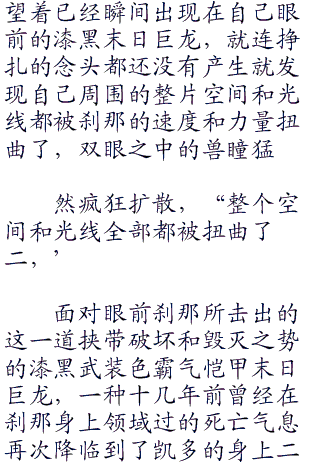 望着已经瞬间出现在自己眼
前的漆黑末日巨龙，就连挣
扎的念头都还没有产生就发
现自己周围的整片空间和光
线都被刹那的速度和力量扭
曲了，双眼之中的兽瞳猛
然疯狂扩散，“整个空
间和光线全部都被扭曲了
二，’
面对眼前刹那所击出的
这一道挟带破坏和毁灭之势
的漆黑武装色霸气恺甲末日
巨龙，一种十几年前曾经在
刹那身上领域过的死亡气息
再次降临到了凯多的身上二